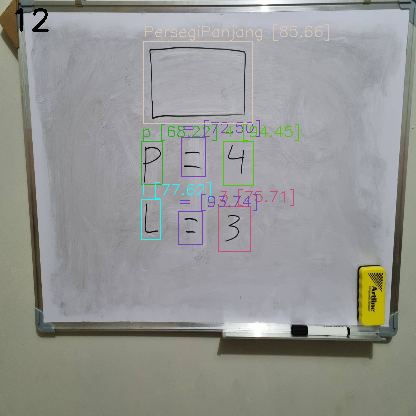 12
PersegiPanjang [85.66]
p [68.22] = [72.50] 4 [94.45]
P = 4
[77.52] = [93.74] 3 [75.71]
L = 3
Artline